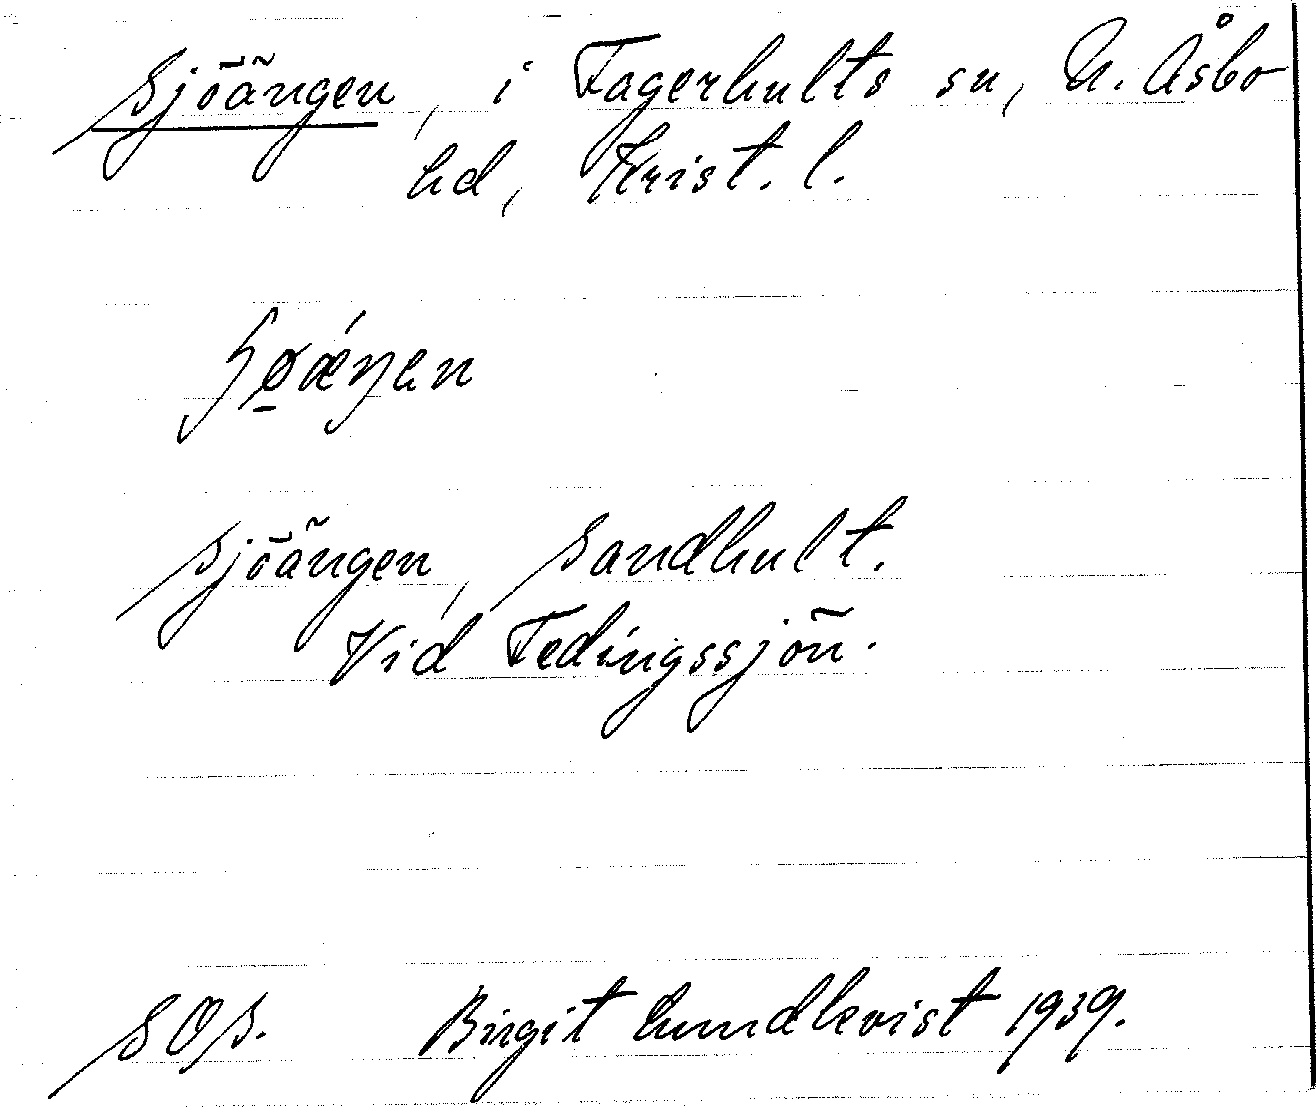 Sjöängen, i Fagerhults sn, N. Åsbo
hd, Krist. l.
Sjöängen, Sandhult.
Vid Fedingssjön.
SOS. Birgit Lundkvist 1939.